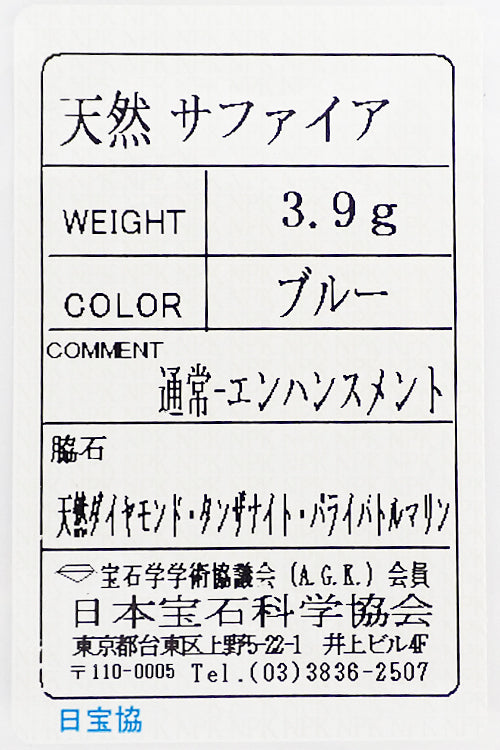 天然 サファイア
WEIGHT 3.9g
COLOR ブルー
COMMENT
通常-エンハンスメント
脇石
天然ダイヤモンド・タンザナイト・パライバトルマリン
宝石学学術協議会 (A.G.K.) 会員
日本宝石科学協会
東京都台東区上野5-22-1 井上ビル4F
〒110-0005 Tel.(03)3836-2507
日宝協